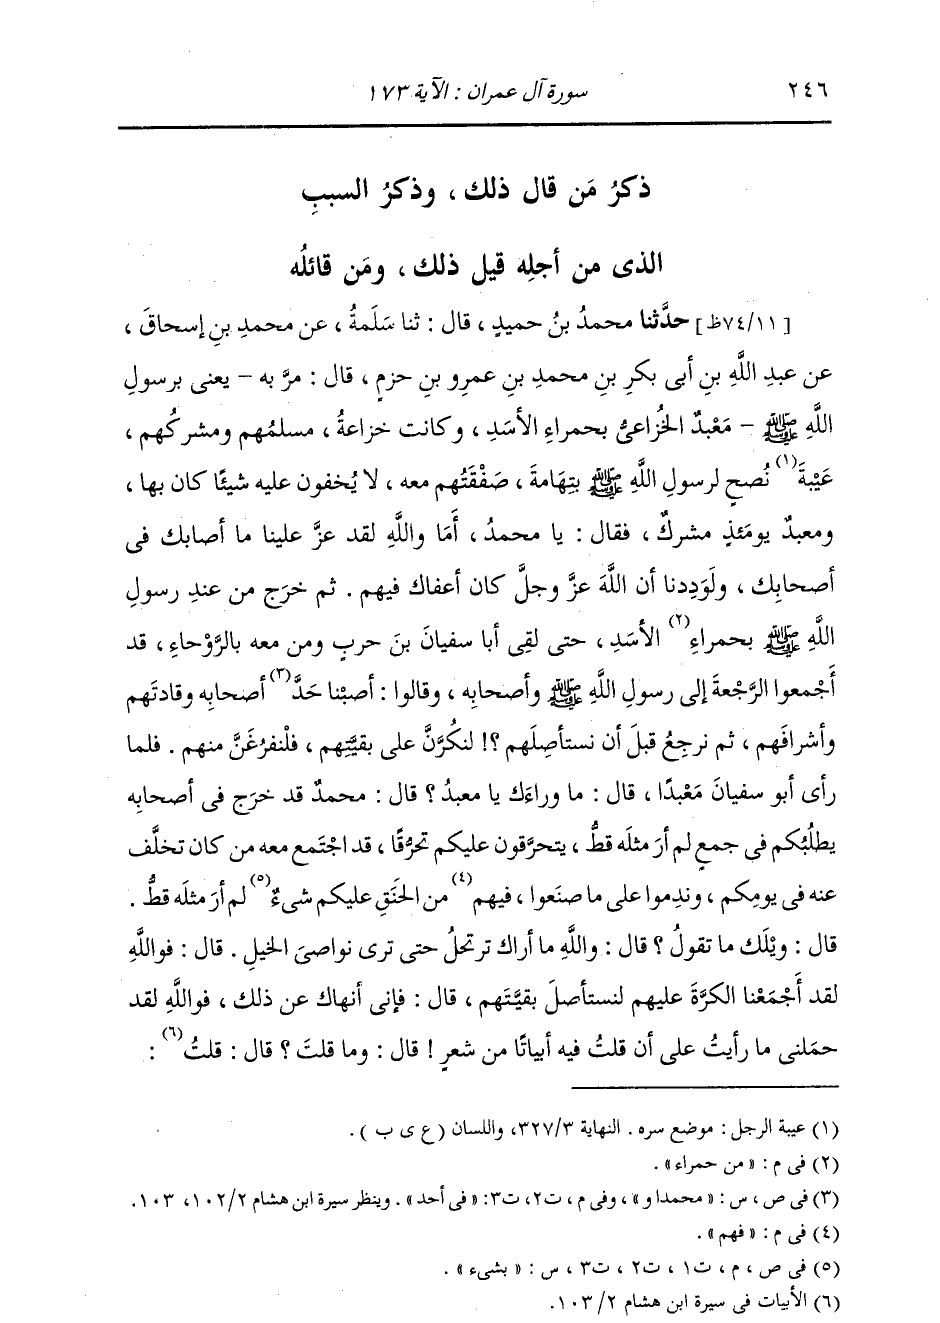 ٢٤٦ سورة آل عمران : الآية ١٧٣
ذكرُ مَن قال ذلك ، وذكرُ السببِ
الذى من أجلِه قيل ذلك ، ومَن قائلُه
[ ٧٤/١١ظ] حدَّثنا محمدُ بنُ حميدٍ ، قال : ثنا سَلَمةُ ، عن محمدِ بنِ إسحاقَ ،
عن عبدِ اللَّهِ بنِ أبى بكرِ بنِ محمدِ بنِ عمرِو بنِ حزمٍ ، قال : مرَّ به – يعنى برسولِ
اللَّهِ ﷺ – مَعْبدٌ الخُزاعىُّ بحمراءِ الأسَدِ ، وكانت خزاعةُ ، مسلمُهم ومشركُهم ،
عَيْبةَ(١) نُصحٍ لرسولِ اللَّهِ ﷺ بتِهامةَ ، صَفْقَتُهم معه ، لا يُخفون عليه شيئًا كان بها ،
ومعبدٌ يومَئذٍ مشركٌ ، فقال : يا محمدُ ، أمَا واللَّهِ لقد عزَّ علينا ما أصابك فى
أصحابِك ، ولَوَدِدنا أن اللَّهَ عزَّ وجلَّ كان أعفاك فيهم . ثم خرَج من عندِ رسولِ
اللَّهِ ﷺ بحمراءِ(٢) الأسَدِ ، حتى لقِى أبا سفيانَ بنَ حربٍ ومن معه بالرَّوْحاءِ ، قد
أَجْمعوا الرَّجْعةَ إلى رسولِ اللَّهِ ﷺ وأصحابِه ، وقالوا : أصبْنا حَدَّ(٣) أصحابِه وقادتَهم
وأشرافَهم ، ثم نرجِعُ قبلَ أن نستأصِلَهم ؟! لنكُرَّنَّ على بقيَّتِهم ، فلْنفرُغَنَّ منهم . فلما
رأى أبو سفيانَ مَعْبدًا ، قال : ما وراءَك يا معبدُ ؟ قال : محمدٌ قد خرَج فى أصحابِه
يطلُبُكم فى جمعٍ لم أرَ مثلَه قطُّ ، يتحرَّقون عليكم تحرُّقًا ، قد اجْتَمع معه من كان تخلَّف
عنه فى يومِكم ، وندِموا على ما صنَعوا ، فيهم(٤) من الحَنَقِ عليكم شىءٌ(٥) لم أرَ مثلَه قطُّ .
قال : ويْلَك ما تقولُ ؟ قال : واللَّهِ ما أراك ترتحلُ حتى ترى نواصىَ الخيلِ . قال : فواللَّهِ
لقد أَجْمَعْنا الكرَّةَ عليهم لنستأصلَ بقيَّتَهم ، قال : فإنى أنهاك عن ذلك ، فواللَّهِ لقد
حمَلنى ما رأيتُ على أن قلتُ فيه أبياتًا من شعرٍ ! قال : وما قلتَ ؟ قال : قلتُ(٦) :
(١) عيبة الرجل : موضع سره . النهاية ٣٢٧/٣، واللسان (ع ى ب ) .
(٢) فى م : « من حمراء » .
(٣) فى ص ، س : « محمدا و » ، وفى م ، ت٢، ت٣: « فى أحد » . وينظر سيرة ابن هشام ١٠٢/٢، ١٠٣.
(٤) فى م : « فهم » .
(٥) فى ص ، م ، ت١ ، ت٢ ، ت٣ ، س : « بشىء » .
(٦) الأبيات فى سيرة ابن هشام ١٠٣/٢.